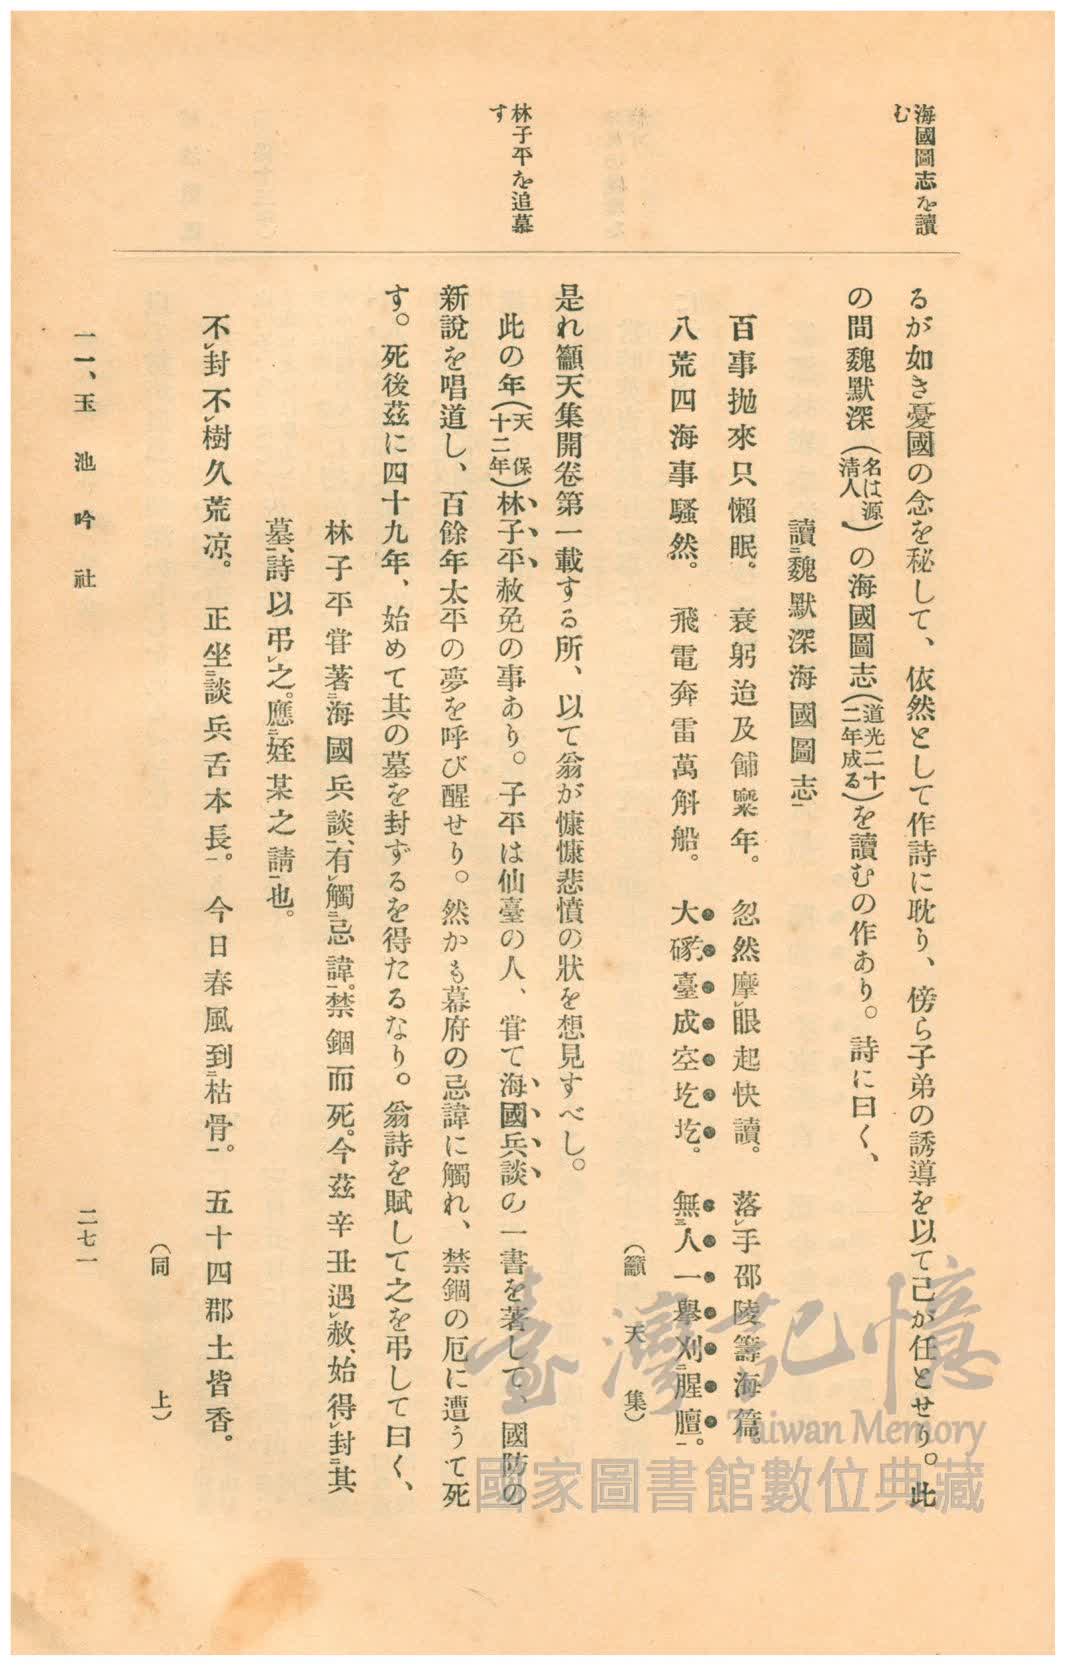 海國圖志を讀
む
林子平を追慕
す
るが如き憂國の念を秘して、依然として作詩に耽り、傍ら子弟の誘導を以て己が任とせり。此
の間魏默深(名は源清人)の海國圖志(道光二十二年成る)を讀むの作あり。詩に曰く、
讀二魏默深海國圖志一
百事抛來只懶眠。 衰躬迨及餔糜年。 忽然摩レ眼起快讀。 落レ手邵陵籌海篇。
八荒四海事騷然。 飛電奔雷萬斛船。 大礮臺成空圪圪。 無三人一擧刈二腥膻一。
(籲天集)
是れ籲天集開卷第一載する所、以て翁が慷慨悲憤の狀を想見すべし。
此の年(天保十二年)林子平赦免の事あり。子平は仙臺の人、嘗て海國兵談の一書を著して、國防の
新說を唱道し、百餘年太平の夢を呼び醒せり。然かも幕府の忌諱に觸れ、禁錮の厄に遭うて死
す。死後茲に四十九年、始めて其の墓を封ずるを得たるなり。翁詩を賦して之を弔して曰く、
林子平嘗著二海國兵談一、有レ觸二忌諱一。禁錮而死。今茲辛丑遇レ赦、始得レ封二其
墓一、詩以弔レ之。應二姪某之請一也。
不レ封不レ樹久荒凉。 正坐二談兵舌本長一。 今日春風到二枯骨一。 五十四郡土皆香。
(同上)
一一、玉池吟社
二七一
臺灣記憶
Taiwan Memory
國家圖書館數位典藏